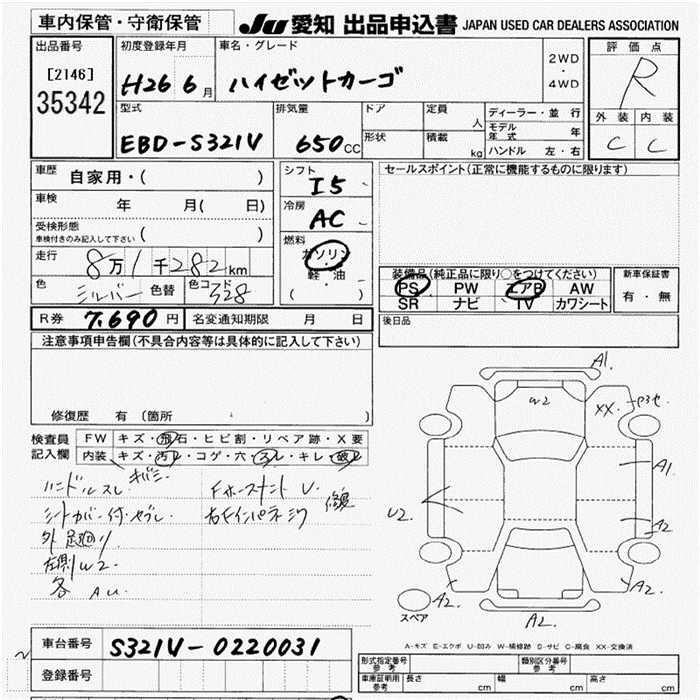 車内保管・守衛保管
JU 愛知 出品申込書 JAPAN USED CAR DEALERS ASSOCIATION
出品番号
[2146]
35342
初度登録年月
H26 6月
車名・グレード
ハイゼットカーゴ
2WD
・
4WD
評価点
R
外装 内装
C C
型式
EBD-S321V
排気量
650CC
ドア
形状
定員
人
積載
kg
ディーラー・並行
モデル年式 年
ハンドル 左・右
車歴
自家用・( )
車検
年 月( 日)
受検形態
車検付きのみ記入して下さい ( )
走行
8万1千282km
色
シルバー
色替
色コード
S28
シフト
I5
冷房
AC
燃料
ガソリン
・
軽油
( )
セールスポイント(正常に機能するものに限ります)
装備品(純正品に限り○をつけてください)
PS PW エアB AW
SR ナビ TV カワシート
新車保証書
有・無
R券 7,690円 名変通知期限 月 日
後日品
注意事項申告欄(不具合内容等は具体的に記入して下さい)
修復歴 有 (箇所
検査員
記入欄
FW キズ・飛石・ヒビ割・リペア跡・X要
内装 キズ・汚レ・コゲ・穴・スレ・キレ・破レ
ハンドルスレ キバミ
シートカバー付・ヤブレ
外 足廻り
左側W2
各 AU
Fホースメント U
右Fインパネミゾ 修復
A1
W2
XX
A1
U2
A2
A2
A2
A2
スペア
A-キズ E-エクボ U-凹み W-補修跡 S-サビ C-腐食 XX-交換済
車台番号 S321V-0220031
登録番号
形式指定番号
参考
類別区分番号
参考
車庫証明用
参考
長さ cm
幅 cm
高さ cm